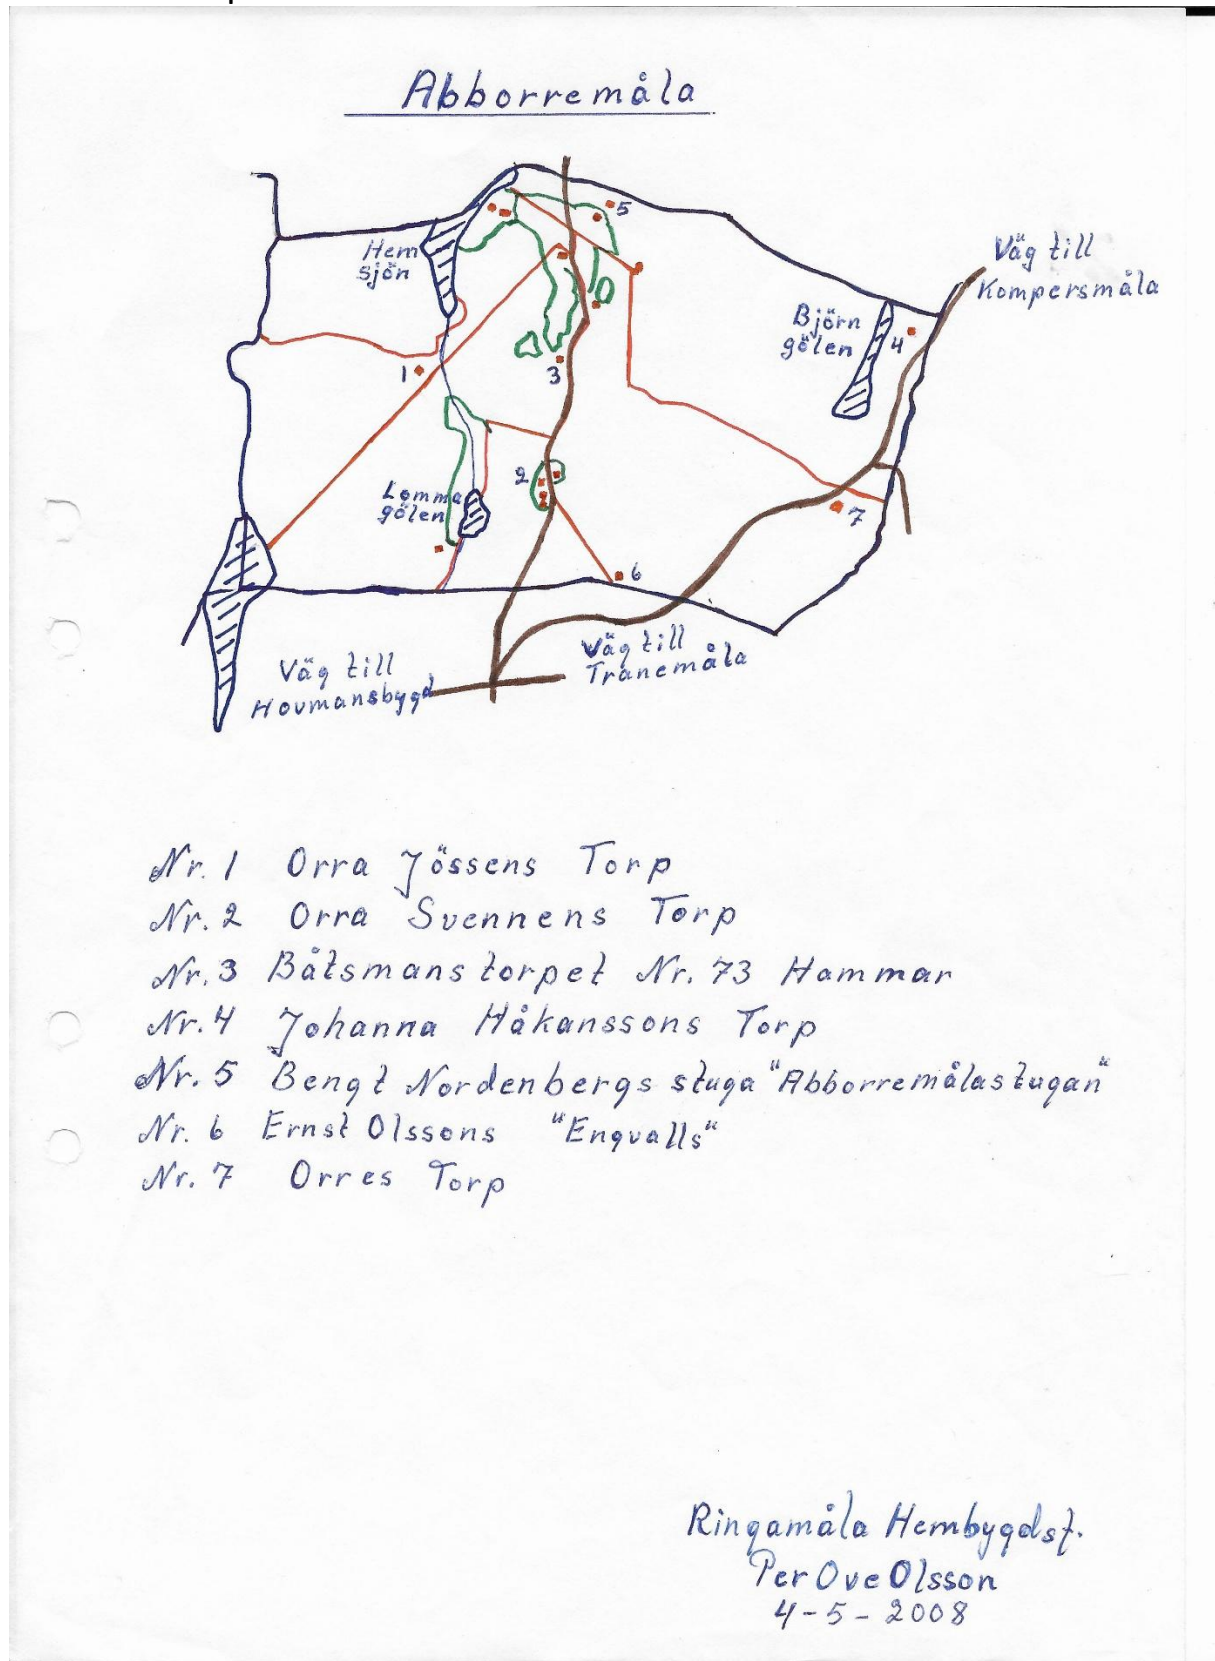 Abborremåla
5
Hem
sjön
Väg till
Kompersmåla
Björn
gölen
4
1
3
2
Lomma
gölen
7
6
Väg till
Tranemåla
Väg till
Hovmansbygd
Nr. 1 Orra Jössens Torp
Nr. 2 Orra Svennens Torp
Nr. 3 Båtsmanstorpet Nr. 73 Hammar
Nr. 4 Johanna Håkanssons Torp
Nr. 5 Bengt Nordenbergs stuga "Abborremålastugan"
Nr. 6 Ernst Olssons "Enqvalls"
Nr. 7 Orres Torp
Ringamåla Hembygdsf.
Per Ove Olsson
4-5-2008